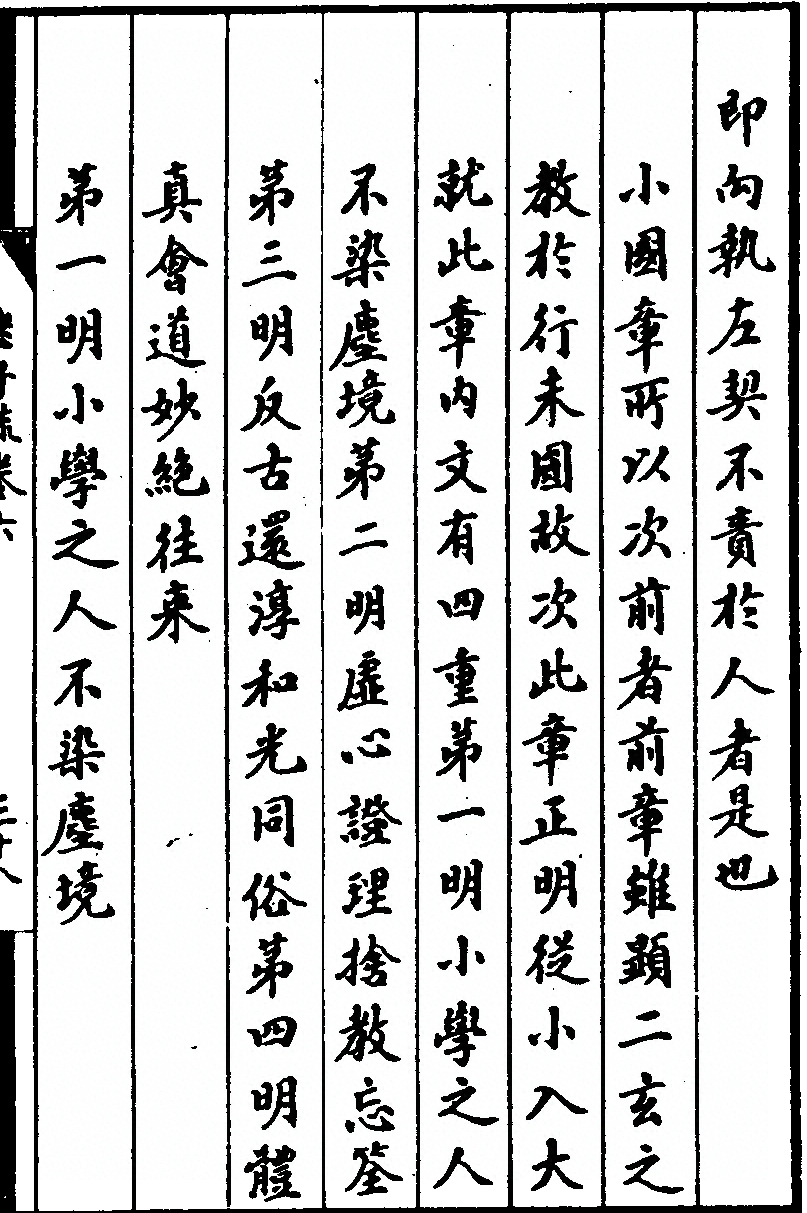 即向執左契不責於人者是也
小國章所以次前者前章雖顯二玄之
教於行未圓故次此章正明從小入大
就此章內文有四重第一明小學之人
不染塵境第二明虛心證理捨教忘筌
第三明反古還淳和光同俗第四明體
真會道妙絕往來
第一明小學之人不染塵境